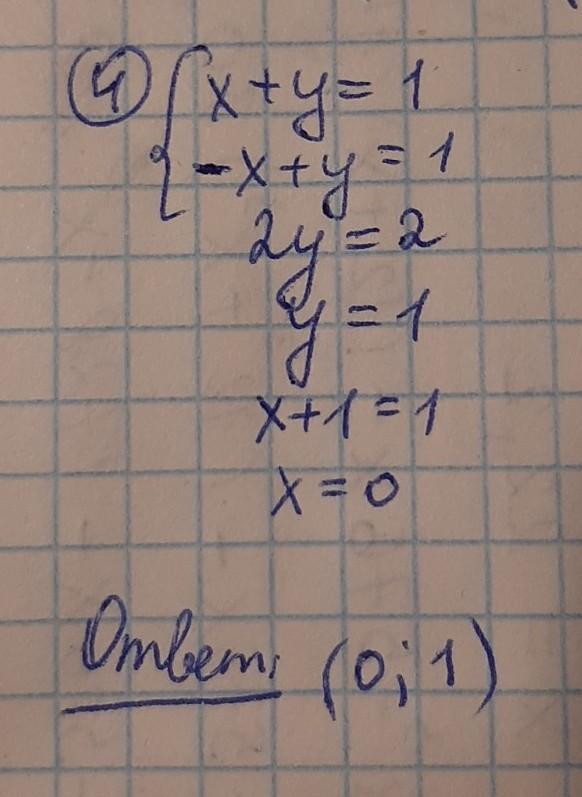 ④ { x + y = 1
-x + y = 1
2y = 2
y = 1
x + 1 = 1
x = 0
Ответ: (0; 1)